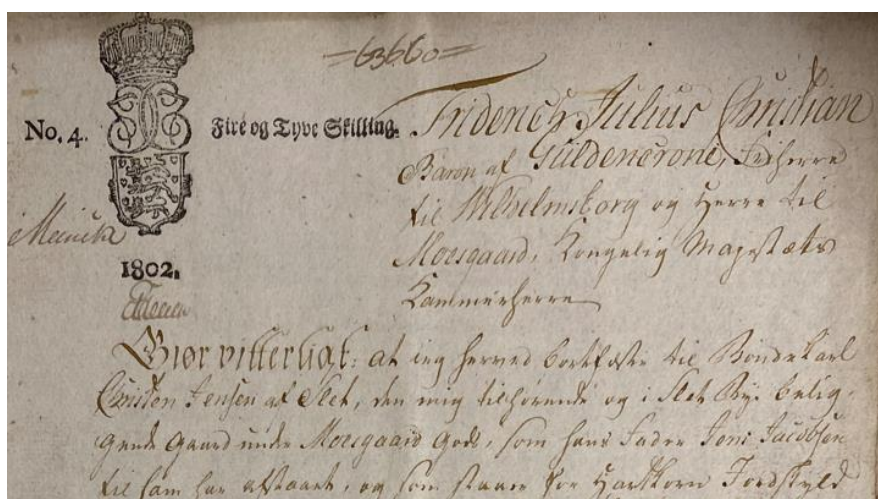 =63660=
No. 4. Fire og Tyve Skilling.
Friderich Julius Christian
Baron af Güldencrone, Friherre
til Wilhelmsborg og Herre til
Moesgaard, Kongelig Mayestæts
Kammerherre
1802.
Giør vitterligt: at ieg herved bortfæster til Bondekarl
Christen Jensen af Slet, den mig tilhørende og i Slet Bye belig-
gende Gaard under Moesgaard Gods, som hans Fader Jens Jacobsen
til ham har afstaaet, og som staaer for Hartkorn Jordskyld